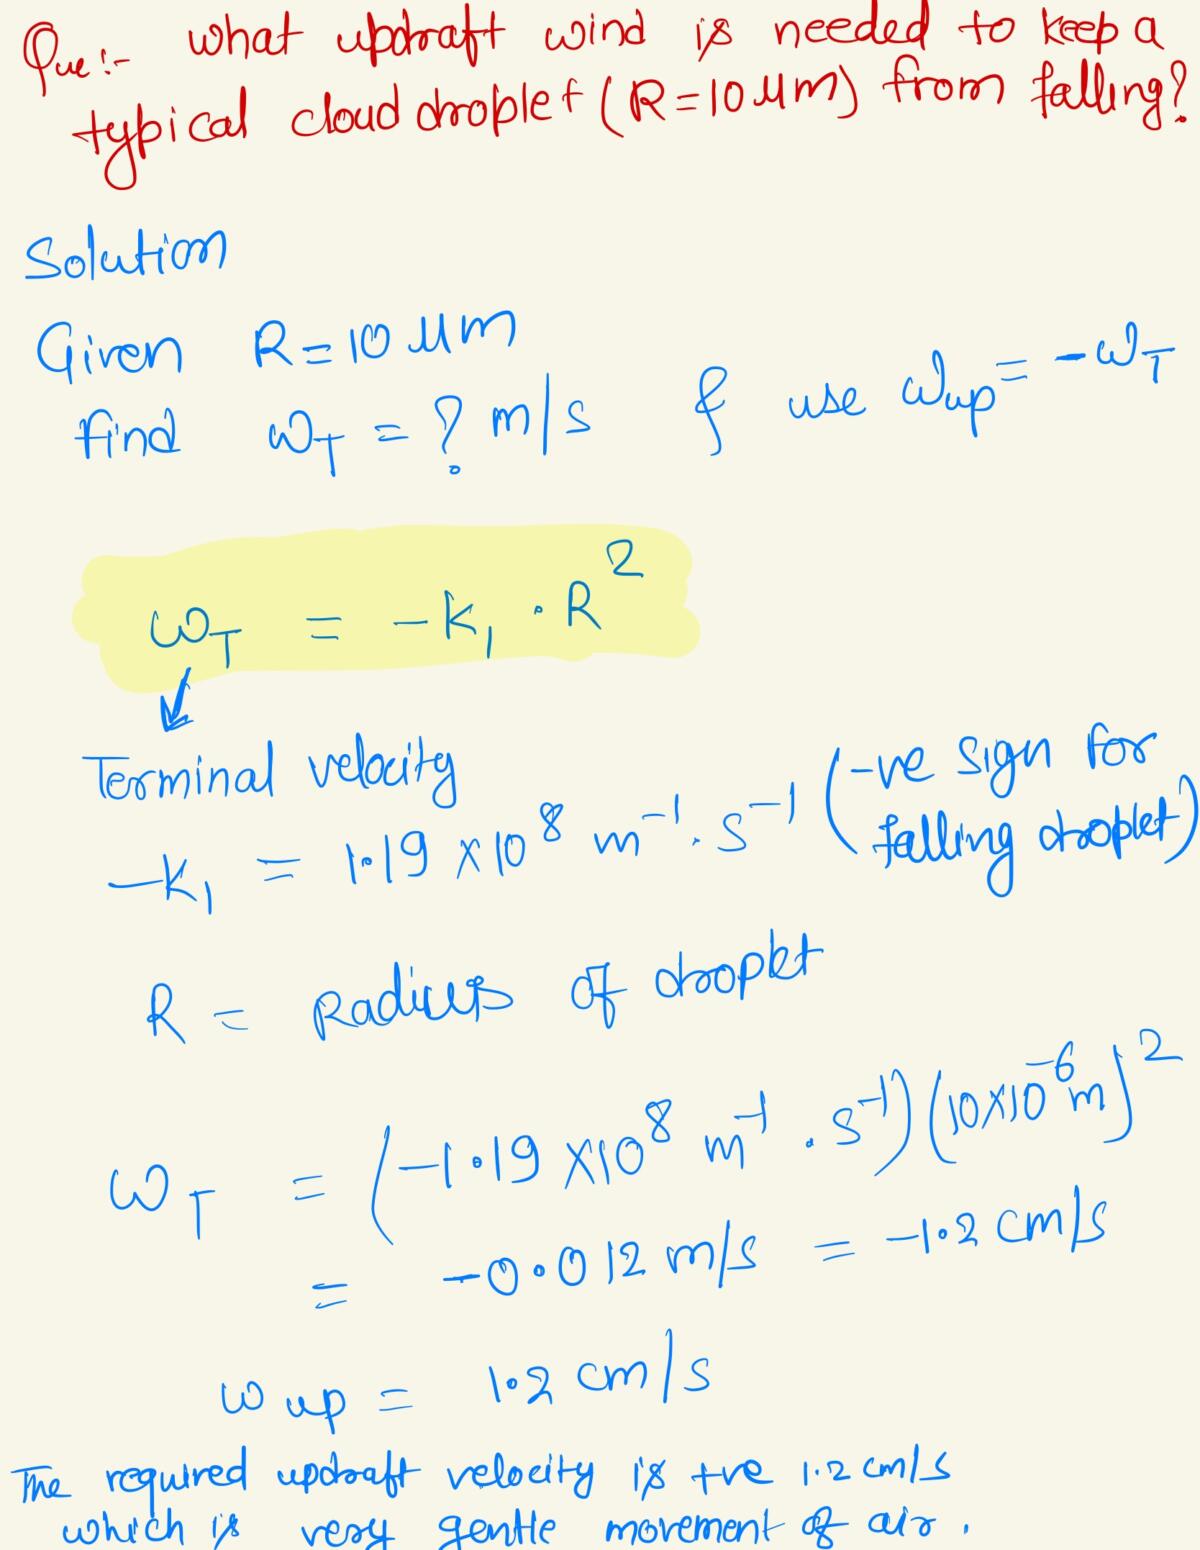 Que:- what updraft wind is needed to keep a
typical cloud droplet (R=10 μm) from falling?
Solution
Given R=10 μm
find ω_T = ? m/s & use ω_up = -ω_T
ω_T = -k₁ · R²
Terminal velocity
-k₁ = 1.19 × 10⁸ m⁻¹ . s⁻¹ (-ve sign for
falling droplet)
R = Radius of droplet
ω_T = (-1.19 × 10⁸ m⁻¹ . s⁻¹) (10×10⁻⁶ m)²
= -0.012 m/s = -1.2 cm/s
ω_up = 1.2 cm/s
The required updraft velocity is +ve 1.2 cm/s
which is very gentle movement of air.